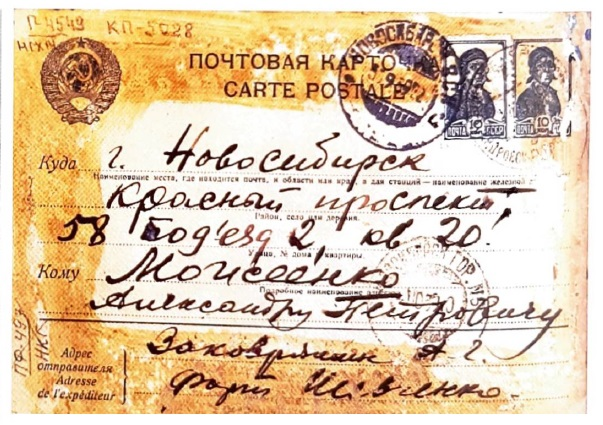 П-4549 КП-5028
ПОЧТОВАЯ КАРТОЧКА
CARTE POSTALE
ПОЧТА 10 СССР
ПОЧТА 10
Куда г. Новосибирск
Наименование места, где находится почта, и области или края, а для станций — наименование железной
Красный проспект
Район, село или деревня.
58 Под'езд 2, кв. 20!
Улица, № дома и квартиры.
Кому Моисеенко
Подробное наименование
Александру Петровичу
Адрес отправителя
Adresse de l'expéditeur